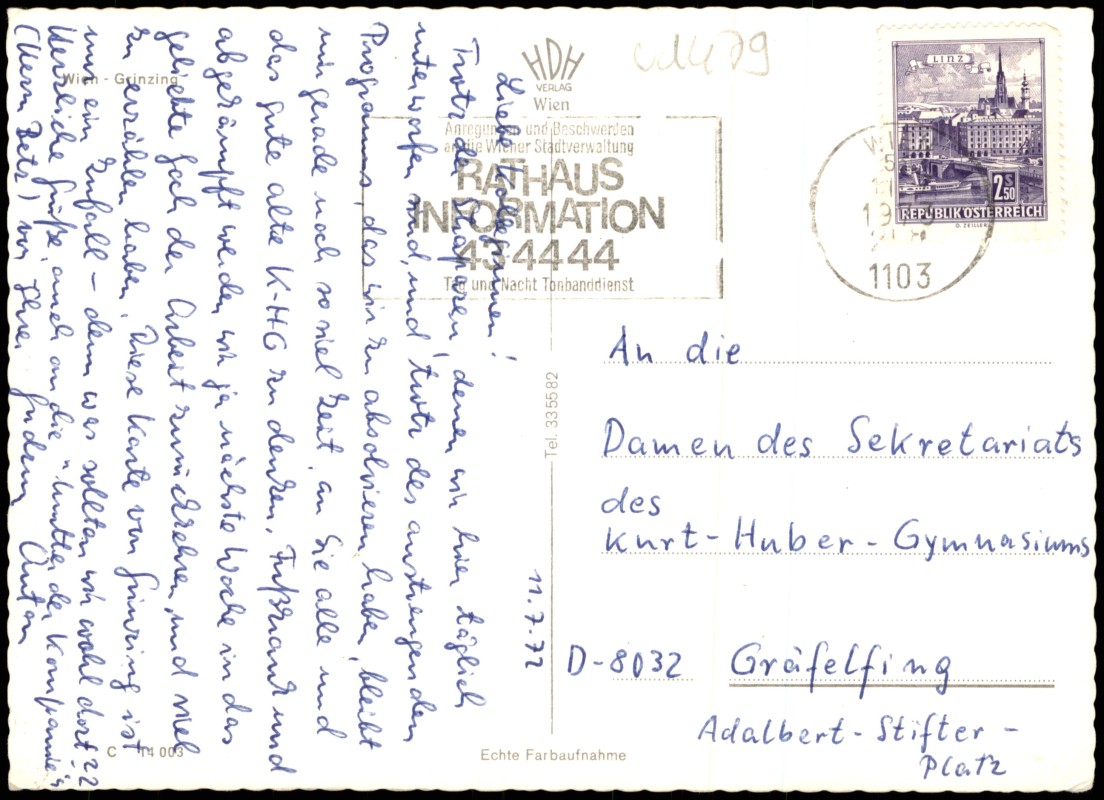 Wien - Grinzing
HDH
VERLAG
Wien
Anregungen und Beschwerden
an die Wiener Stadtverwaltung
RATHAUS
INFORMATION
43 44 44
Tag und Nacht Tonbanddienst
LINZ
2.50
REPUBLIK ÖSTERREICH
1103
11.7.72
Liebe Kolleginnen!
Trotz der Strapazen, denen wir hier täglich
unterworfen sind, und trotz des anstrengenden
Programms, das wir zu absolvieren haben, bleibt
mir gerade noch so viel Zeit, an Sie alle und
das gute alte K-HG zu denken. Fußkrank und
abgekämpft werden wir ja nächste Woche in das
geliebte Joch der Arbeit zurückkehren und viel
zu erzählen haben. Diese Karte von Grinzing ist
nur ein Zufall - denn was sollten wir wohl dort??
Herzliche Grüße, auch an die "Mutter der Kompanie"
(Herrn Betz) von Ihrer Gudrun
Tel. 33 55 82
An die
Damen des Sekretariats
des
Kurt-Huber-Gymnasiums
D-8032 Gräfelfing
Adalbert-Stifter-
Platz
C 14 003
Echte Farbaufnahme